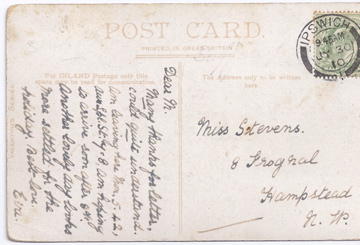 POST CARD.
PRINTED IN GREAT BRITAIN
For INLAND Postage only this
space may be used for communication.
The Address only to be written
here
IPSWICH
10
Dear M.
Many thanks for letter,
could quite understand.
Am leaving here Mon. 5.42,
arr. 8, am hoping
to arrive soon after 8.
Another lovely day looks
more settled for the
holiday Best love
Evie.
Miss Stevens.
8 Frognal
Hampstead
N. W.